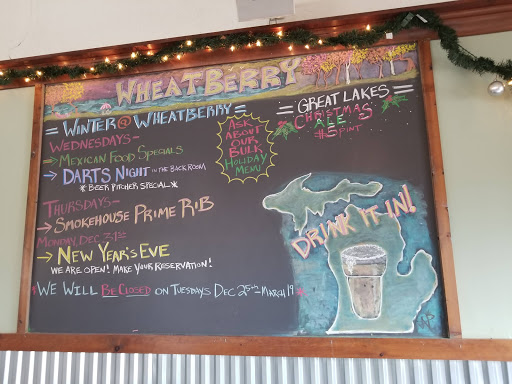 WHEATBERRY
= WINTER @ WHEATBERRY =
WEDNESDAYS -
→ MEXICAN FOOD SPECIALS
→ DARTS NIGHT IN THE BACK ROOM
* BEER PITCHER SPECIAL *
THURSDAYS -
→ SMOKEHOUSE PRIME RIB
MONDAY, DEC 31ST
→ NEW YEAR'S EVE
WE ARE OPEN! MAKE YOUR RESERVATION!
* WE WILL BE CLOSED ON TUESDAYS DEC 25TH - MARCH 19 *
ASK
ABOUT
OUR
BULK
HOLIDAY
MENU
= GREAT LAKES =
CHRISTMAS
ALE
$5 PINT
DRINK IT IN!